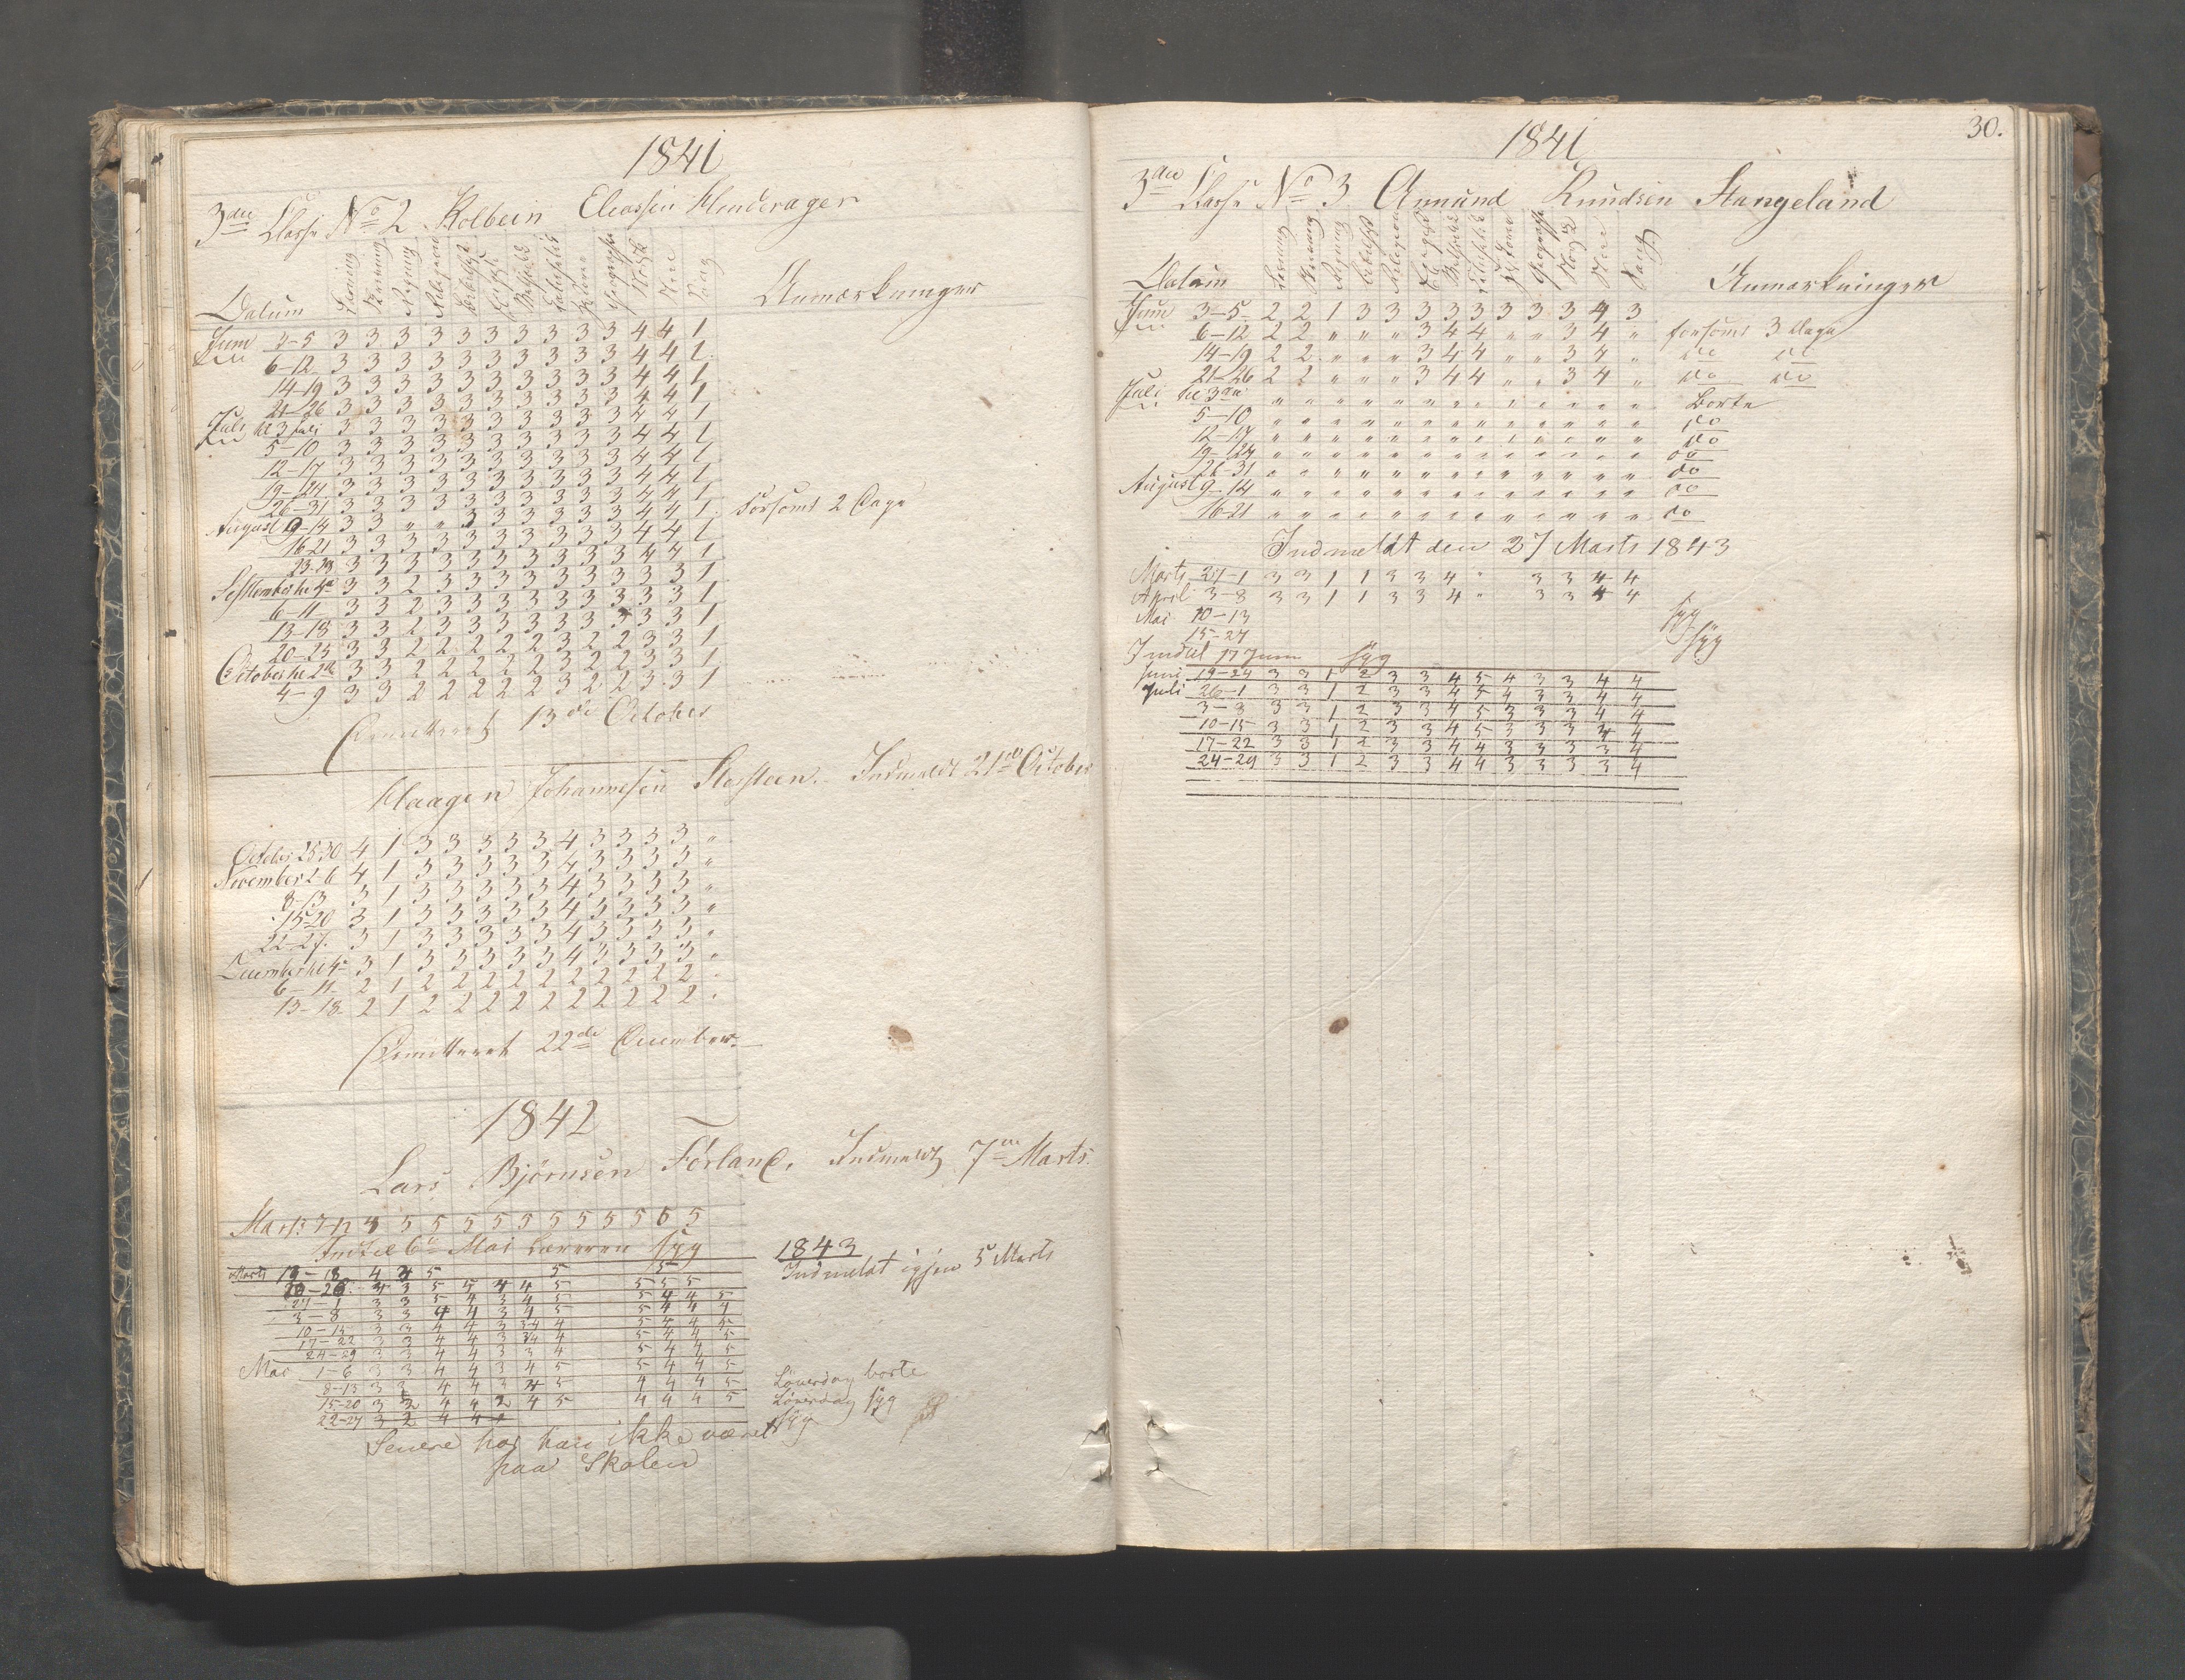 1841
3die Classe No 2 Kolbein Eliassen
Datum Anmærkninger
Juni 3-5 3 3 3 3 3 3 3 3 3 3 4 4 1
6-12 3 3 3 3 3 3 3 3 3 3 4 4 1
14-19 3 3 3 3 3 3 3 3 3 3 4 4 1
21-26 3 3 3 3 3 3 3 3 3 3 4 4 1
Juli til 3 Juli 3 3 3 3 3 3 3 3 3 3 4 4 1
5-10 3 3 3 3 3 3 3 3 3 3 4 4 1
12-17 3 3 3 3 3 3 3 3 3 3 4 4 1
19-24 3 3 3 3 3 3 3 3 3 3 4 4 1
26-31 3 3 3 3 3 3 3 3 3 3 4 4 1
August 9-14 3 3 " " 3 3 3 3 3 3 4 4 1 forsømt 2 Dage
16-21 3 3 3 3 3 3 3 3 3 3 4 4 1
3 3 3 3 3 3 3 3 3 3 4 4 1
September til 4de 3 3 2 3 3 3 3 3 3 3 3 3 1
6-11 3 3 2 3 3 3 3 3 3 3 3 3 1
13-18 3 3 2 3 3 3 3 3 3 3 3 3 1
20-25 3 3 2 2 2 2 2 3 2 2 3 3 1
October til 2de 3 3 2 2 2 2 2 3 2 2 3 3 1
4-9 3 3 2 2 2 2 2 3 2 2 3 3 1
Dimitteret 13de October
Haagen Johannesen Indmeldt 21de October
October 25-30 4 1 3 3 3 3 3 4 3 3 3 3 "
November 2-6 4 1 3 3 3 3 3 4 3 3 3 3 "
8-13 3 1 3 3 3 3 3 4 3 3 3 3 "
15-20 3 1 3 3 3 3 3 4 3 3 3 3 "
22-27 3 1 3 3 3 3 3 4 3 3 3 3 "
December til 4de 3 1 3 3 3 3 3 4 3 3 3 3 "
6-11 2 1 2 2 2 2 2 2 2 2 2 2 "
13-18 2 1 2 2 2 2 2 2 2 2 2 2 "
Dimitteret 22de December
1842
Lars Bjørnsen Førland. Indmeldt 7de Marts.
Marts 7-12 5 5 5 5 5 5 5 5 5 5 5
Indtil 6te Mai Læreren syg
1843
Indmeldt igjen 5 Marts
Marts 13-18 4 4 5 5 5
20-26 4 3 5 5 4 4 5 5 5 5
27-1 3 3 5 4 3 4 5 5 4 4 5
3-8 3 3 4 4 3 4 5 5 4 4 4
10-15 3 3 4 4 3 34 4 5 4 4 5
17-22 3 3 4 4 3 34 4 5 4 4 5
24-29 3 3 4 4 3 3 4 5 4 4 5
Mai 1-6 3 3 4 4 3 4 5 5 4 4 5
8-13 3 3 4 4 3 4 5 4 4 4 5 Løverdag borte
15-20 3 2 4 4 2 4 5 4 4 4 5 Løverdag syg
22-27 3 2 4 4 syg
Senere har han ikke været
paa Skolen
30.
1841
3die Classe No 3. Amund Knudsen Stangeland
Datum Anmærkninger
Juni 3-5 2 2 1 3 3 3 3 3 3 3 3 4 3
6-12 2 2 " " " 3 4 4 " " 3 4 " forsømt 3 Dage
14-19 2 2 " " " 3 4 4 " " 3 4 " do do
21-26 2 2 " " " 3 4 4 " " 3 4 " do do
Juli til 3die " " " " " " " " " " " " " Borte
5-10 " " " " " " " " " " " " " do
12-17 " " " " " " " " " " " " " do
19-24 " " " " " " " " " " " " " do
26-31 " " " " " " " " " " " " " do
August 9-14 " " " " " " " " " " " " " do
16-21 " " " " " " " " " " " " " do
Indmeldt den 27 Marts 1843
Marts 27-1 3 3 1 1 3 3 4 " 3 3 4 4
April 3-8 3 3 1 1 3 3 4 " 3 3 4 4
Mai 10-13 syg
15-27 syg
Indtil 17 Juni syg
Juni 19-24 3 3 1 2 3 3 4 5 4 3 3 4 4
Juli 26-1 3 3 1 2 3 3 4 5 4 3 3 4 4
3-8 3 3 1 2 3 3 4 5 3 3 3 4 4
10-15 3 3 1 2 3 3 4 5 3 3 3 3 4
17-22 3 3 1 2 3 3 4 4 3 3 3 3 4
24-29 3 3 1 2 3 3 4 4 3 3 3 3 4